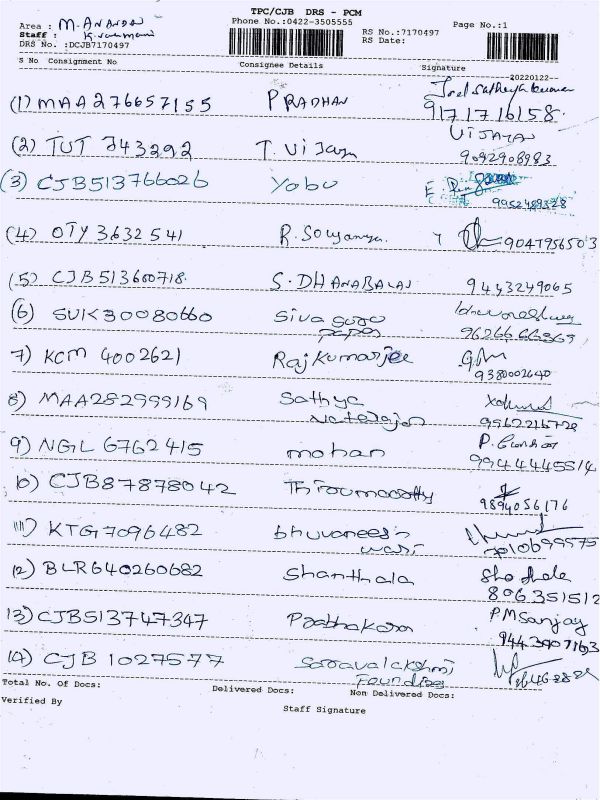 TPC/CJB DRS - PCM
Area : M. ANANDAN
Phone No.:0422-3505555
Page No.:1
Staff :
RS No.:7170497
DRS No. :DCJB7170497
RS Date:
S No Consignment No Consignee Details Signature
20220122
(1) MAA276657155 PRADHAN
9171716158
(2) TUT 743292 T. Vijaya VIJAYAN
9092908983
(3) CJB513766026 Yobu
9952489328
(4) OTY 3632541 R. Sowyanya. 9047956503
(5) CJB513600718 S. DHANABALAN 9443249065
(6) SUK30080660 Siva guru
papers 9626666369
7) KCM 4002621 Rajkumarjee
9380002640
8) MAA282999169 Sathya
Natarajan
9) NGL 6762415 mohan
9944445514
10) CJB87878042 Thirumoorthy
9894056176
11) KTG7096482 bhuvanees
wari
12) BLR640260682 Shanthala
896351512
13) CJB513747347 Prabhakaran P.M Sanjay
9443907163
14) CJB 1027577 Saravalakshmi
Total No. Of Docs: Delivered Docs: Non Delivered Docs:
Verified By
Staff Signature